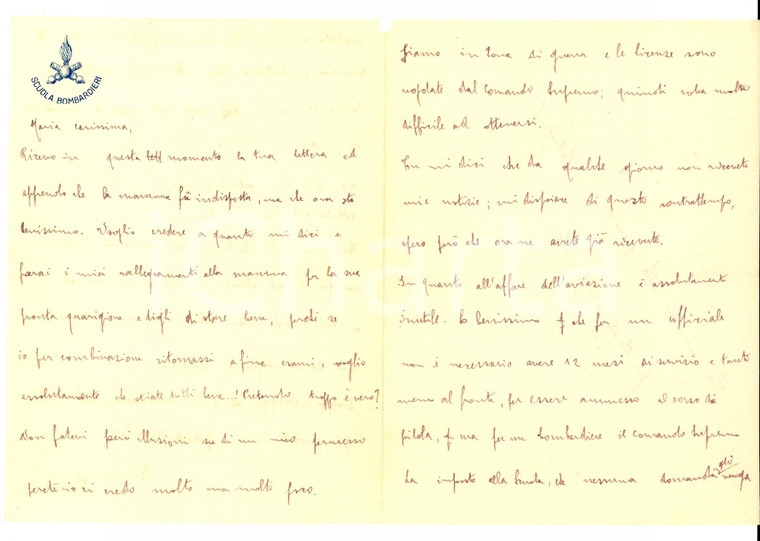 SCUOLA BOMBARDIERI
Maria carissima,
Ricevo in questa momento la tua lettera ed
apprendo che la mamma fu indisposta, ma che ora sta
benissimo. Voglio credere a quanto mi dici e
farai i miei rallegramenti alla mamma per la sua
pronta guarigione e digli di stare bene, perché se
io per combinazione ritornassi a fine esami, voglio
assolutamente che stiate tutti bene...! Pretendo troppo è vero?
Non fatevi però illusioni su di un mio permesso
perché io ci credo molto ma molto poco.
Siamo in zona di guerra e le licenze sono
regolate dal Comando Supremo; quindi roba molto
difficile ad ottenersi.
Tu mi dici che da qualche giorno non ricevete
mie notizie; mi dispiace di questo contrattempo,
spero però che ora ne avrete già ricevute.
In quanto all'affare dell'aviazione è assolutamente
inutile. So benissimo che per un ufficiale
non è necessario avere 12 mesi di servizio e tanto
meno al fronte, per essere ammesso al corso di
pilota, ma per un bombardiere il Comando Supremo
ha imposto alla Scuola, che nessuna domanda gli venga